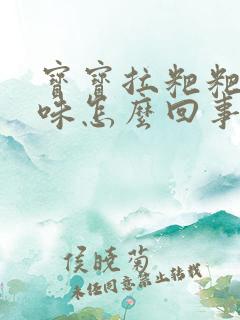 寶寶拉粑粑
味怎麼回事
侯曉菊
未經同意禁止轉載